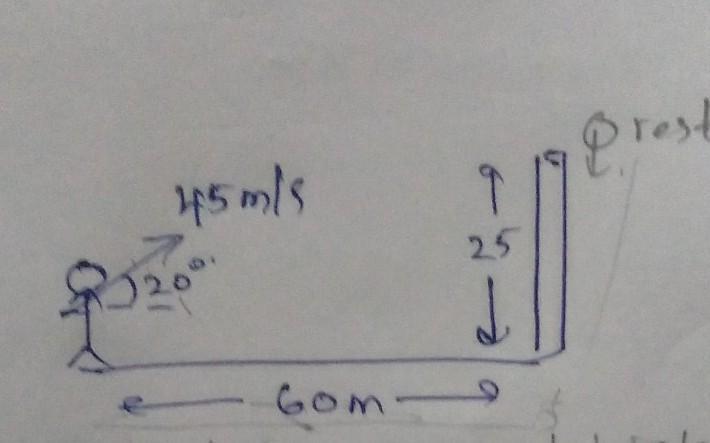 rest
45m/s
25
20°
60m